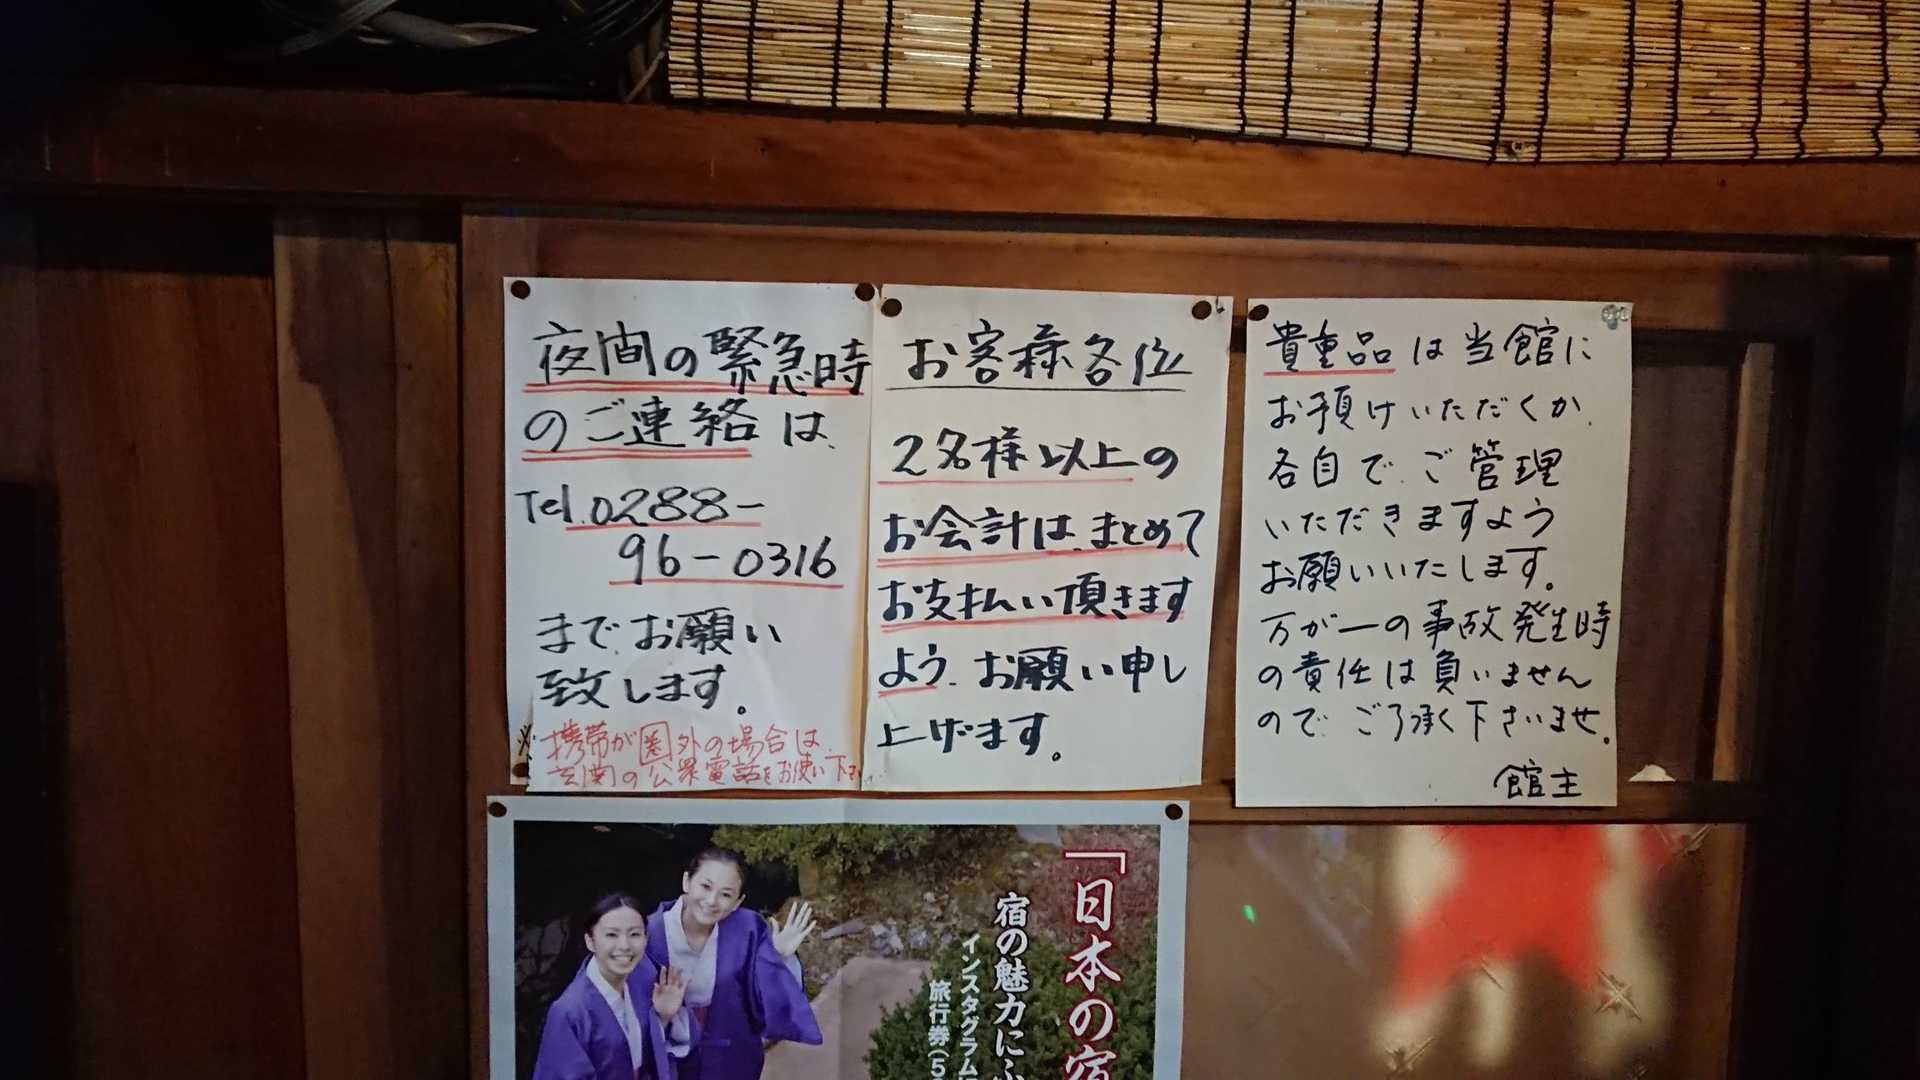 夜間の緊急時
のご連絡は、
Tel.0288-
96-0316
までお願い
致します。
※携帯が圏外の場合は、
玄関の公衆電話をお使い下さ
お客様各位
2名様以上の
お会計は、まとめて
お支払い頂きます
よう、お願い申し
上げます。
貴重品は当館に
お預けいただくか、
各自で、ご管理
いただきますよう
お願いいたします。
万が一の事故発生時
の責任は負いません
ので、ご了承く下さいませ。
館主
「日本の宿
宿の魅力にふ
インスタグラムに
旅行券(5